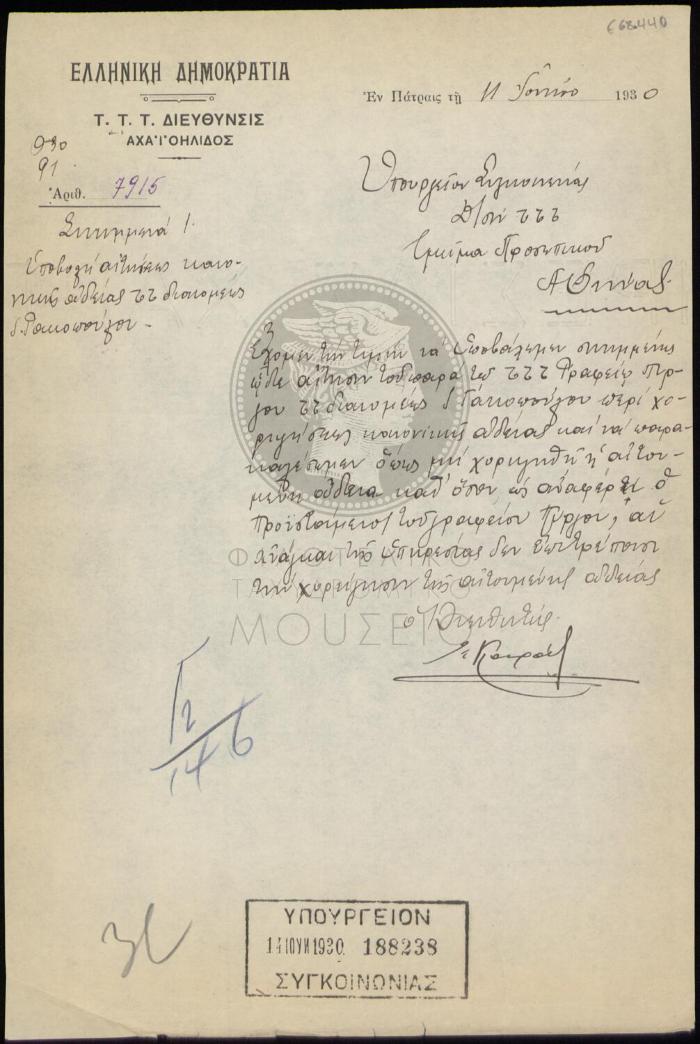 668.440
ΕΛΛΗΝΙΚΗ ΔΗΜΟΚΡΑΤΙΑ
Τ. Τ. Τ. ΔΙΕΥΘΥΝΣΙΣ
ΑΧΑΪΟΗΛΙΔΟΣ
Ἀριθ. 7915
Ἐν Πάτραις τῇ 11 Ἰουνίου 1930
Συνημμενά 1.
Ὑποβολή αἰτήσεως κανο-
νικῆς ἀδείας διανομέως
Ὑπουργεῖον Συγκοινωνίας
Δ/σιν τττ
Τμῆμα Προσωπικοῦ
Ἀθήνας
Ἔχομεν τήν τιμήν νά ὑποβάλωμεν συνημμένως
ὧδε αἴτησιν τοῦ παρά τῷ τττ Γραφείῳ Πύρ-
γου διανομέως περί χο-
ρηγήσεως κανονικῆς ἀδείας καί νά παρα-
καλέσωμεν ὅπως μή χορηγηθῇ ἡ αἰτου-
μένη ἄδεια καθ' ὅσον ὡς ἀναφέρει ὁ
προϊστάμενος τοῦ γραφείου Πύργου, αἱ
ἀνάγκαι τῆς ὑπηρεσίας δέν ἐπιτρέπουσι
τήν χορήγησιν τῆς αἰτουμένης ἀδείας
ὁ Διευθυντής
ΦΙΛΟΤΕΛΙΚΟ
ΤΑΧΥΔΡΟΜΙΚΟ
ΜΟΥΣΕΙΟ
14/6
ΥΠΟΥΡΓΕΙΟΝ
14 ΙΟΥΝ 1930 188238
ΣΥΓΚΟΙΝΩΝΙΑΣ